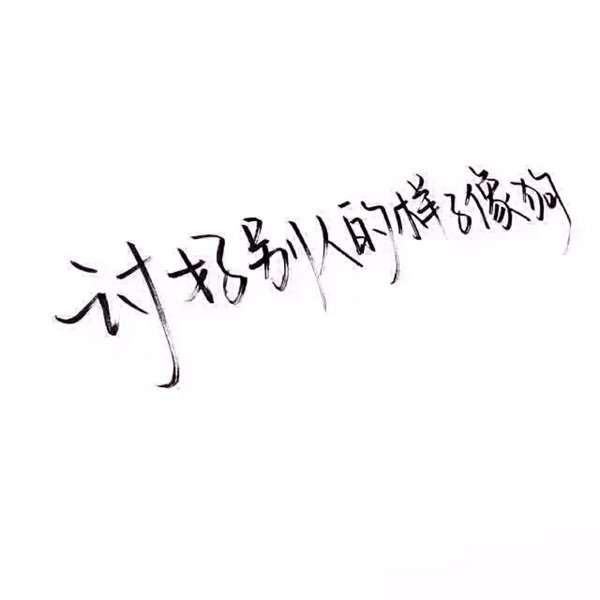 讨好别人的样子像狗